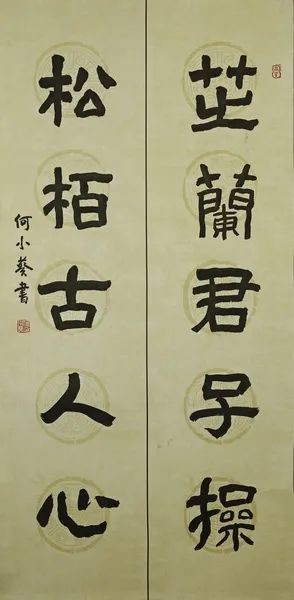 芷蘭君子操
松栢古人心
何小藝書